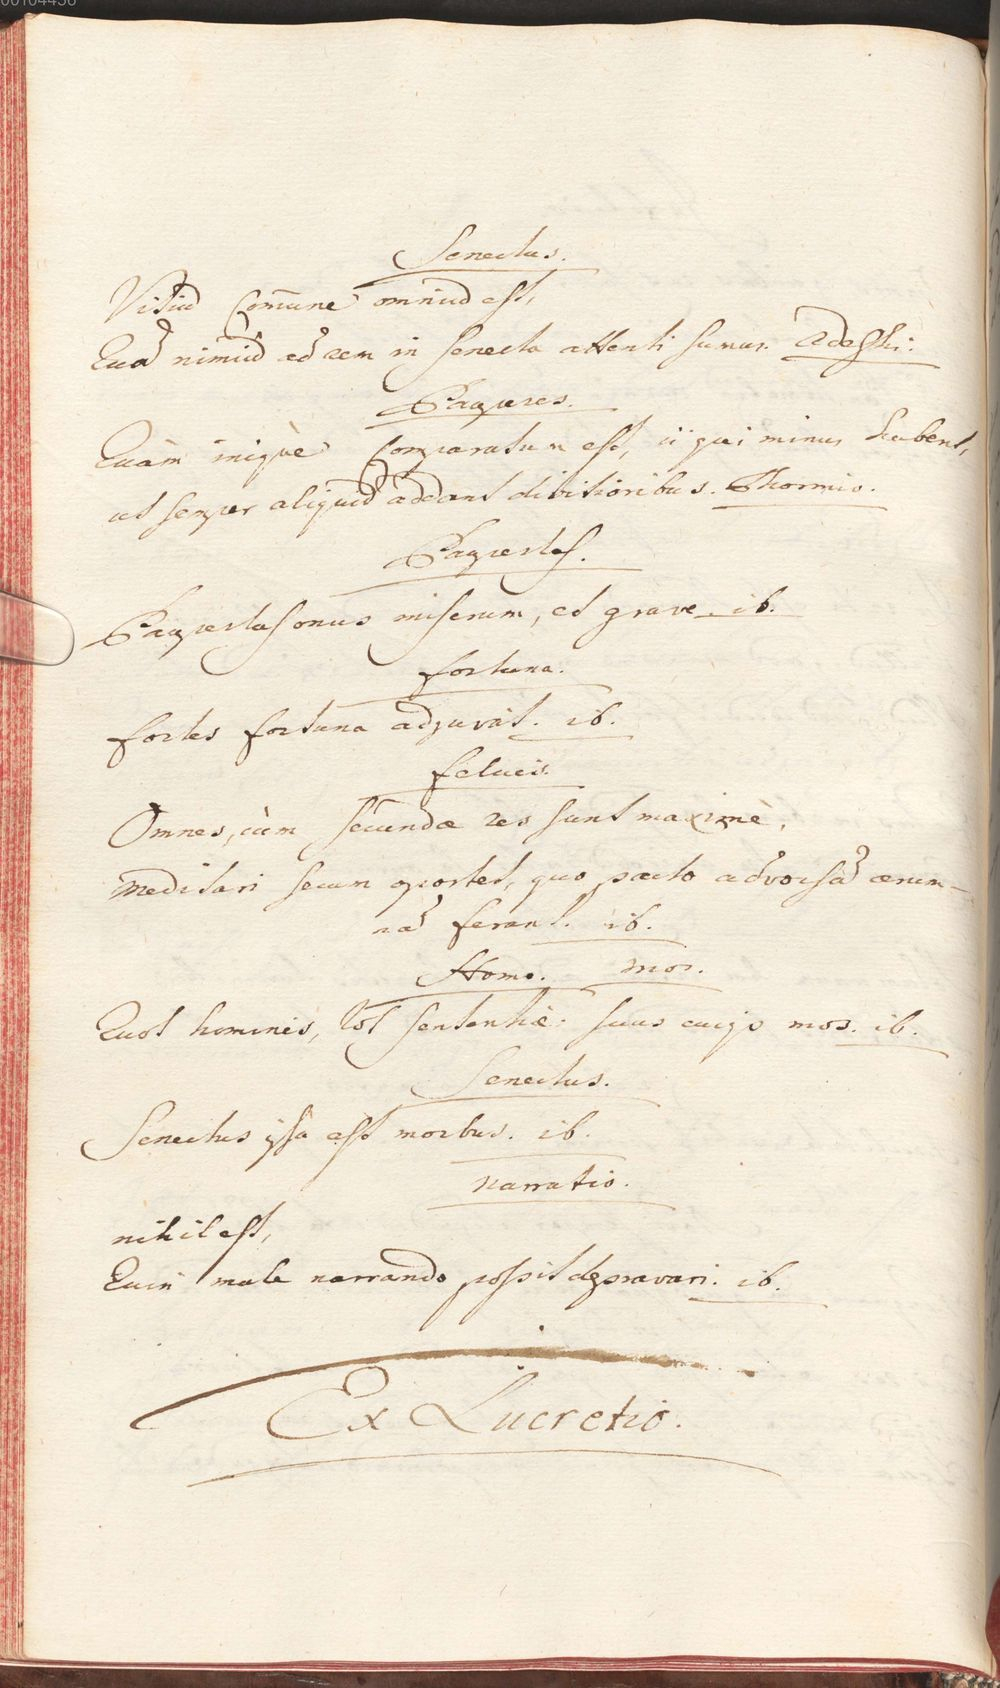 00104436
Senectus.
Vitiu͂ Com̄une omniu͂ est,
Qua͂ nimiu͂ ad rem in senecta attenti sumus. Adelphi.
Pauperes.
Quàm iniquè Comparatum est, ii qui minus habent,
ut semper aliquid addant divitioribus. Phormio.
Paupertas.
Paupertas onus miserum, et grave. ib.
fortuna.
fortes fortuna adjuvat. ib.
felices.
Omnes, cùm secundæ res sunt maximè,
meditari secum oportet, quo pacto adversa͂ ærum-
na͂ ferant. ib.
Homo. mos.
Quot homines, tot sententiæ: suus cuiq; mos. ib.
Senectus.
Senectus ipsa est morbus. ib.
narratio.
nihil est,
Quin male narrando possit depravari. ib.
Ex Lucretio.